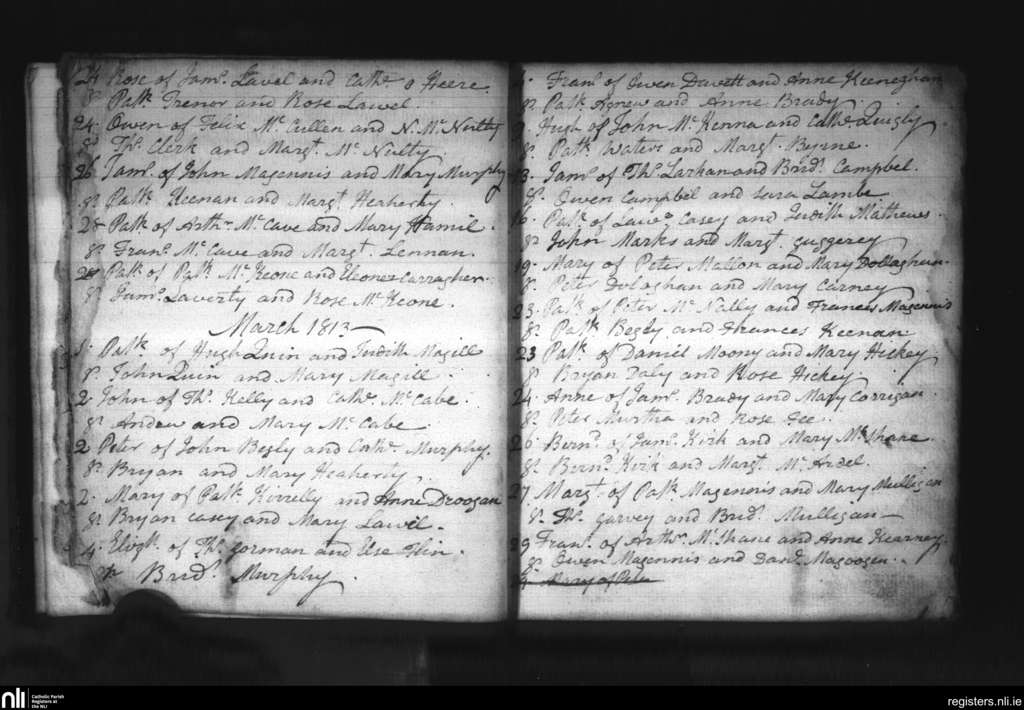 24 Rose of Jams. Lavel and Cathe. o Heere
Sp. Patk. Trenor and Rose Lawel.
24. Owen of Felix Mc. Cullen and N. Mc. Nulty
Sp. Ths. Clerk and Margt. Mc Nulty
26 Jams. of John Magennis and Mary Murphy
Sp. Patk. Keenan and Margt. Heaherty.
Patk. of Arthr. Mc. Cave and Mary Hamil.
Sp. Frans. Mc. Cave and Margt. Lennan.
Patk. of Patk. Mc. Keone and Carragher.
Sp. Jams. Laverty and Rose Mc. Keone.
March 1813
1. Patk. of Hugh Quin and Judith Magill
Sp. John Quin and Mary Magill.
2 John of Ths. Kelly and Cathe. Mc. Cabe.
Sp. Andrew and Mary Mc. Cabe
2 Peter of John Begly and Cathe. Murphy.
Sp. Bryan and Mary Heaherty.
2. Mary of Patk. Kirrely and Anne Droogan
Sp. Bryan Casey and Mary Lawel.
4. Elizth. of Ths. Gorman and Else
Sp. Bridt. Murphy.
Frans. of Owen Davett and Anne Keeneghan
Sp. Patk. Agnew and Anne Brady.
Hugh of John Mc. Kenna and Cathe. Quigly
Sp. Patk. Waters and Margt. Byrne.
13. Jams. of Ths. Larkan and Bridt. Campbel.
Sp. Owen Campbel and Lambe
16. Patk. of Lawce. Casey and Judith Mathews.
Sp. John Marks and Margt. Guggerey
19. Mary of Peter Mallon and Mary Dollaghan.
Sp. Peter Dolaghan and Mary Carney
23. Patk. of Peter Mc. Nally and Frances Magennis
Sp. Patk. Begly and Frances Keenan
23 Patk. of Daniel Moony and Mary Hickey
Sp. Bryan Daly and Rose Hickey.
24. Anne of Jams. Brady and Mary Corrigan.
Sp. Peter Murtha and Rose Fee.
26 Bernd. of Jams. Kirk and Mary Mc. Shane
Sp. Bernd. Kirk and Margt. Mc. Ardel.
27 Margt. of Patk. Magennis and Mary Mulligan
Sp. Ths. Garvey and Bridt. Mulligan
29 Frans. of Arthr. Mc. Shane and Anne Kearney.
Sp. Owen Magennis and Magoogan.
Mary of Peter
nli Catholic Parish
Registers at
the NLI
registers.nli.ie